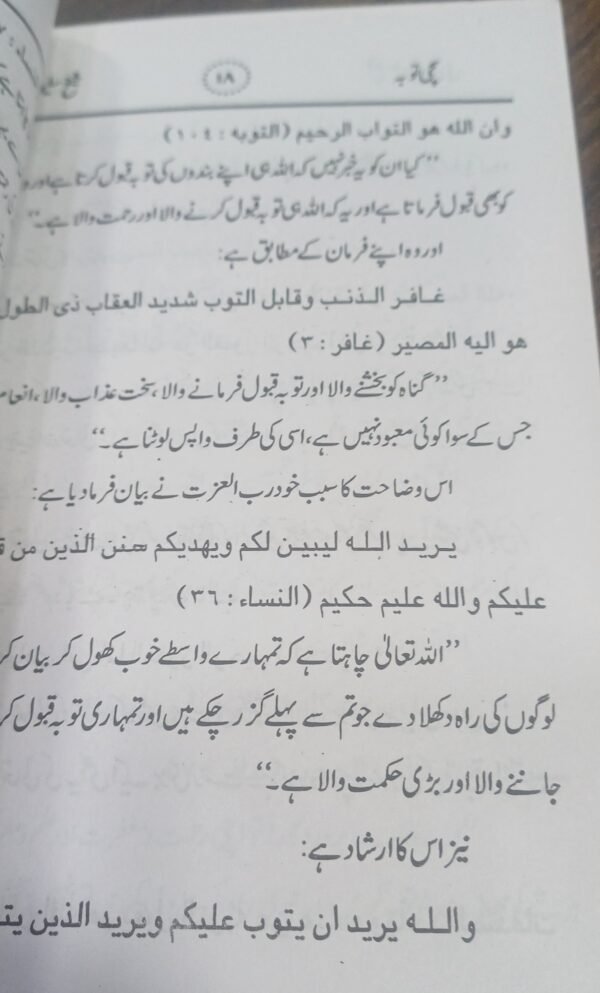 سچی توبہ ۴۸ شیخ
وان الله هو التواب الرحيم (التوبه : ١٠٤)
”کیا ان کو یہ خبر نہیں کہ اللہ ہی اپنے بندوں کی توبہ قبول کرتا ہے اور و
کو بھی قبول فرماتا ہے اور یہ کہ اللہ ہی توبہ قبول کرنے والا اور رحمت والا ہے۔“
اور وہ اپنے فرمان کے مطابق ہے:
غافر الذنب وقابل التوب شديد العقاب ذى الطول
هو اليه المصير (غافر : ٣)
”گناہ کو بخشنے والا اور توبہ قبول فرمانے والا، سخت عذاب والا، انعام
جس کے سوا کوئی معبود نہیں ہے، اسی کی طرف واپس لوٹنا ہے۔“
اس وضاحت کا سبب خود رب العزت نے بیان فرما دیا ہے:
يريد الله ليبين لكم ويهديكم سنن الذين من ق
عليكم والله عليم حكيم (النساء : ٣٦)
”اللہ تعالیٰ چاہتا ہے کہ تمہارے واسطے خوب کھول کر بیان کر
لوگوں کی راہ دکھلا دے جو تم سے پہلے گزر چکے ہیں اور تمہاری توبہ قبول کر
جاننے والا اور بڑی حکمت والا ہے۔“
نیز اس کا ارشاد ہے:
والله يريد ان يتوب عليكم ويريد الذين يت